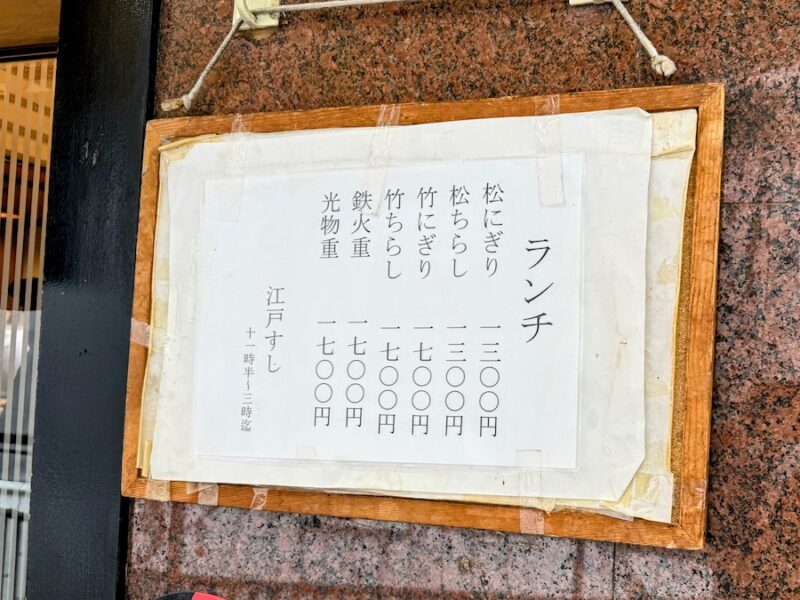 ランチ
松にぎり 一三〇〇円
松ちらし 一三〇〇円
竹にぎり 一七〇〇円
竹ちらし 一七〇〇円
鉄火重 一七〇〇円
光物重 一七〇〇円
江戸すし
十一時半〜三時迄